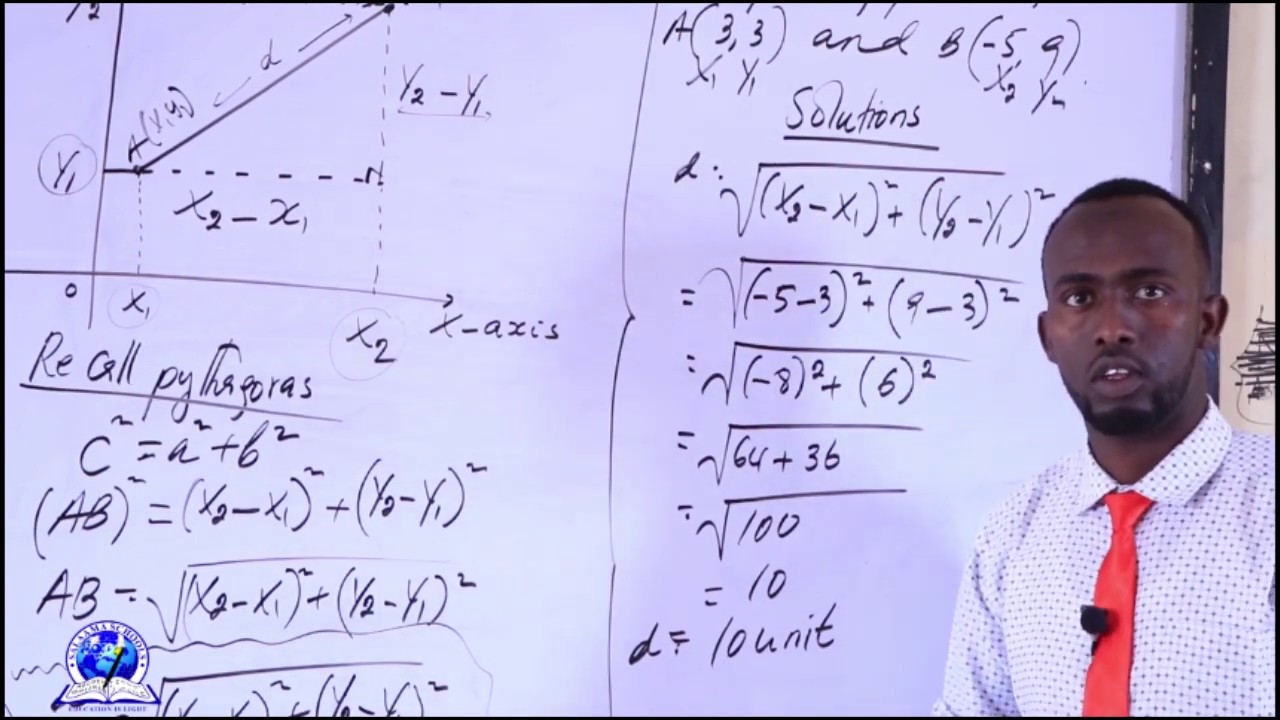 Y2
d
A(X1,Y1)
Y2 - Y1
Y1
X2 - x1
0
X1
X2
X-axis
Recall pythagoras
C² = a² + b²
(AB)² = (X2 - X1)² + (Y2 - Y1)²
AB = √(X2 - X1)² + (Y2 - Y1)²
A(3,3) and B(-5,9)
X1 Y1 X2 Y2
Solutions
d = √(X2 - X1)² + (Y2 - Y1)²
= √(-5-3)² + (9-3)²
= √(-8)² + (6)²
= √64 + 36
= √100
= 10
d = 10 unit
SALAAMA SCHOOLS
EDUCATION IS LIGHT